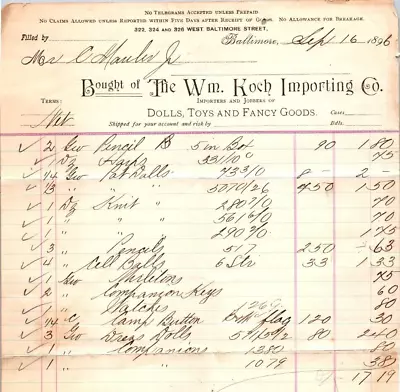 No Telegrams Accepted unless Prepaid
No Claims Allowed unless Reported within Five Days after Receipt of Goods. No Allowance for Breakage.
322, 324 and 326 West Baltimore Street,
Filled by
Baltimore, Sep 16 1896
Mr C Jr
Bought of The Wm. Koch Importing Co.
Importers and Jobbers of
Terms:
Dolls, Toys and Fancy Goods.
Net
Shipped for your account and risk by Cases— Dels.
✓ 2 Gro Pencil B 5 in Box 90 1 80
✓ 1 Dz 33/10° 75
✓ 1/4 Gro Pat Balls 433/0 8 – 2 –
✓ 1/3 " " " 5070/26 4 50 1 50
✓ 1 Dz Knit " 280 2/0 70
✓ 1 " " " 561 6/0 70
✓ 1 " " " 290 9/0 1 75
✓ 3 " Pencils 517 2 50 63
✓ 4 " Cell Balls 6 Str 33 1 33
✓ 1 Gro Skeletons 75
✓ 2 " Companion Keys 60
✓ 1 " 1260 80
✓ 1/4 C Camp Button flag 1 20 30
✓ 3 Gro Dress Dolls 80 2 40
✓ 1 " Companions 1380 80
✓ 1 " 1079 38
17 19